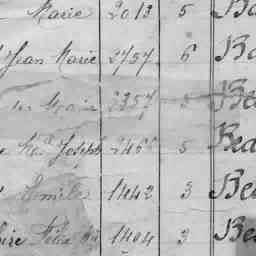 Marie 2013 5 Ba
Jean Marie 2757 6 Ba
2357 5 Bea
Joseph 2466 5 Bea
Emile 1442 3 Bea
Félix 1404 3 Bea